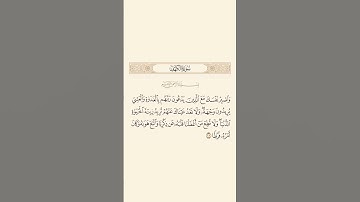 سورة الكهف
واصبر نفسك مع الذين يدعون ربهم بالغدوة والعشي
يريدون وجهه ولا تعد عيناك عنهم تريد زينة الحيوة
الدنيا ولا تطع من أغفلنا قلبه عن ذكرنا واتبع هوىه وكان
أمره فرطا